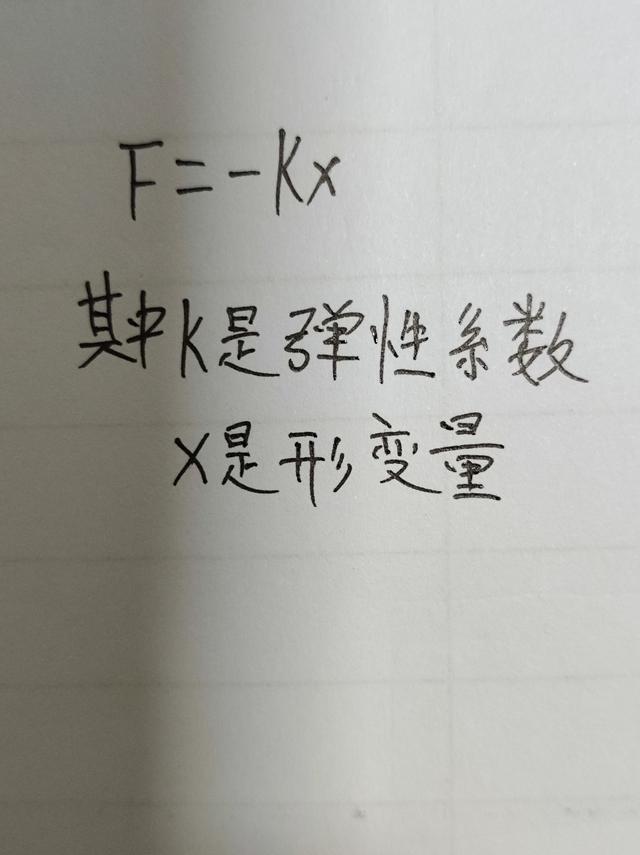 F=-Kx
其中K是弹性系数
X是形变量